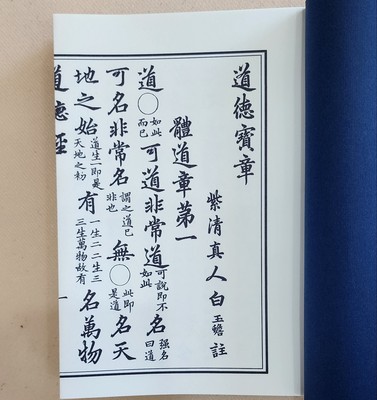 道德寶章
紫清真人白玉蟾註
體道章第一
道○如此而已可道非常道可說即不如此名强名曰道
可名非常名謂之道已非也無○此即是道名天
地之始道生一即是天地之初有一生二二生三三生萬物故有名萬物
道德經 一